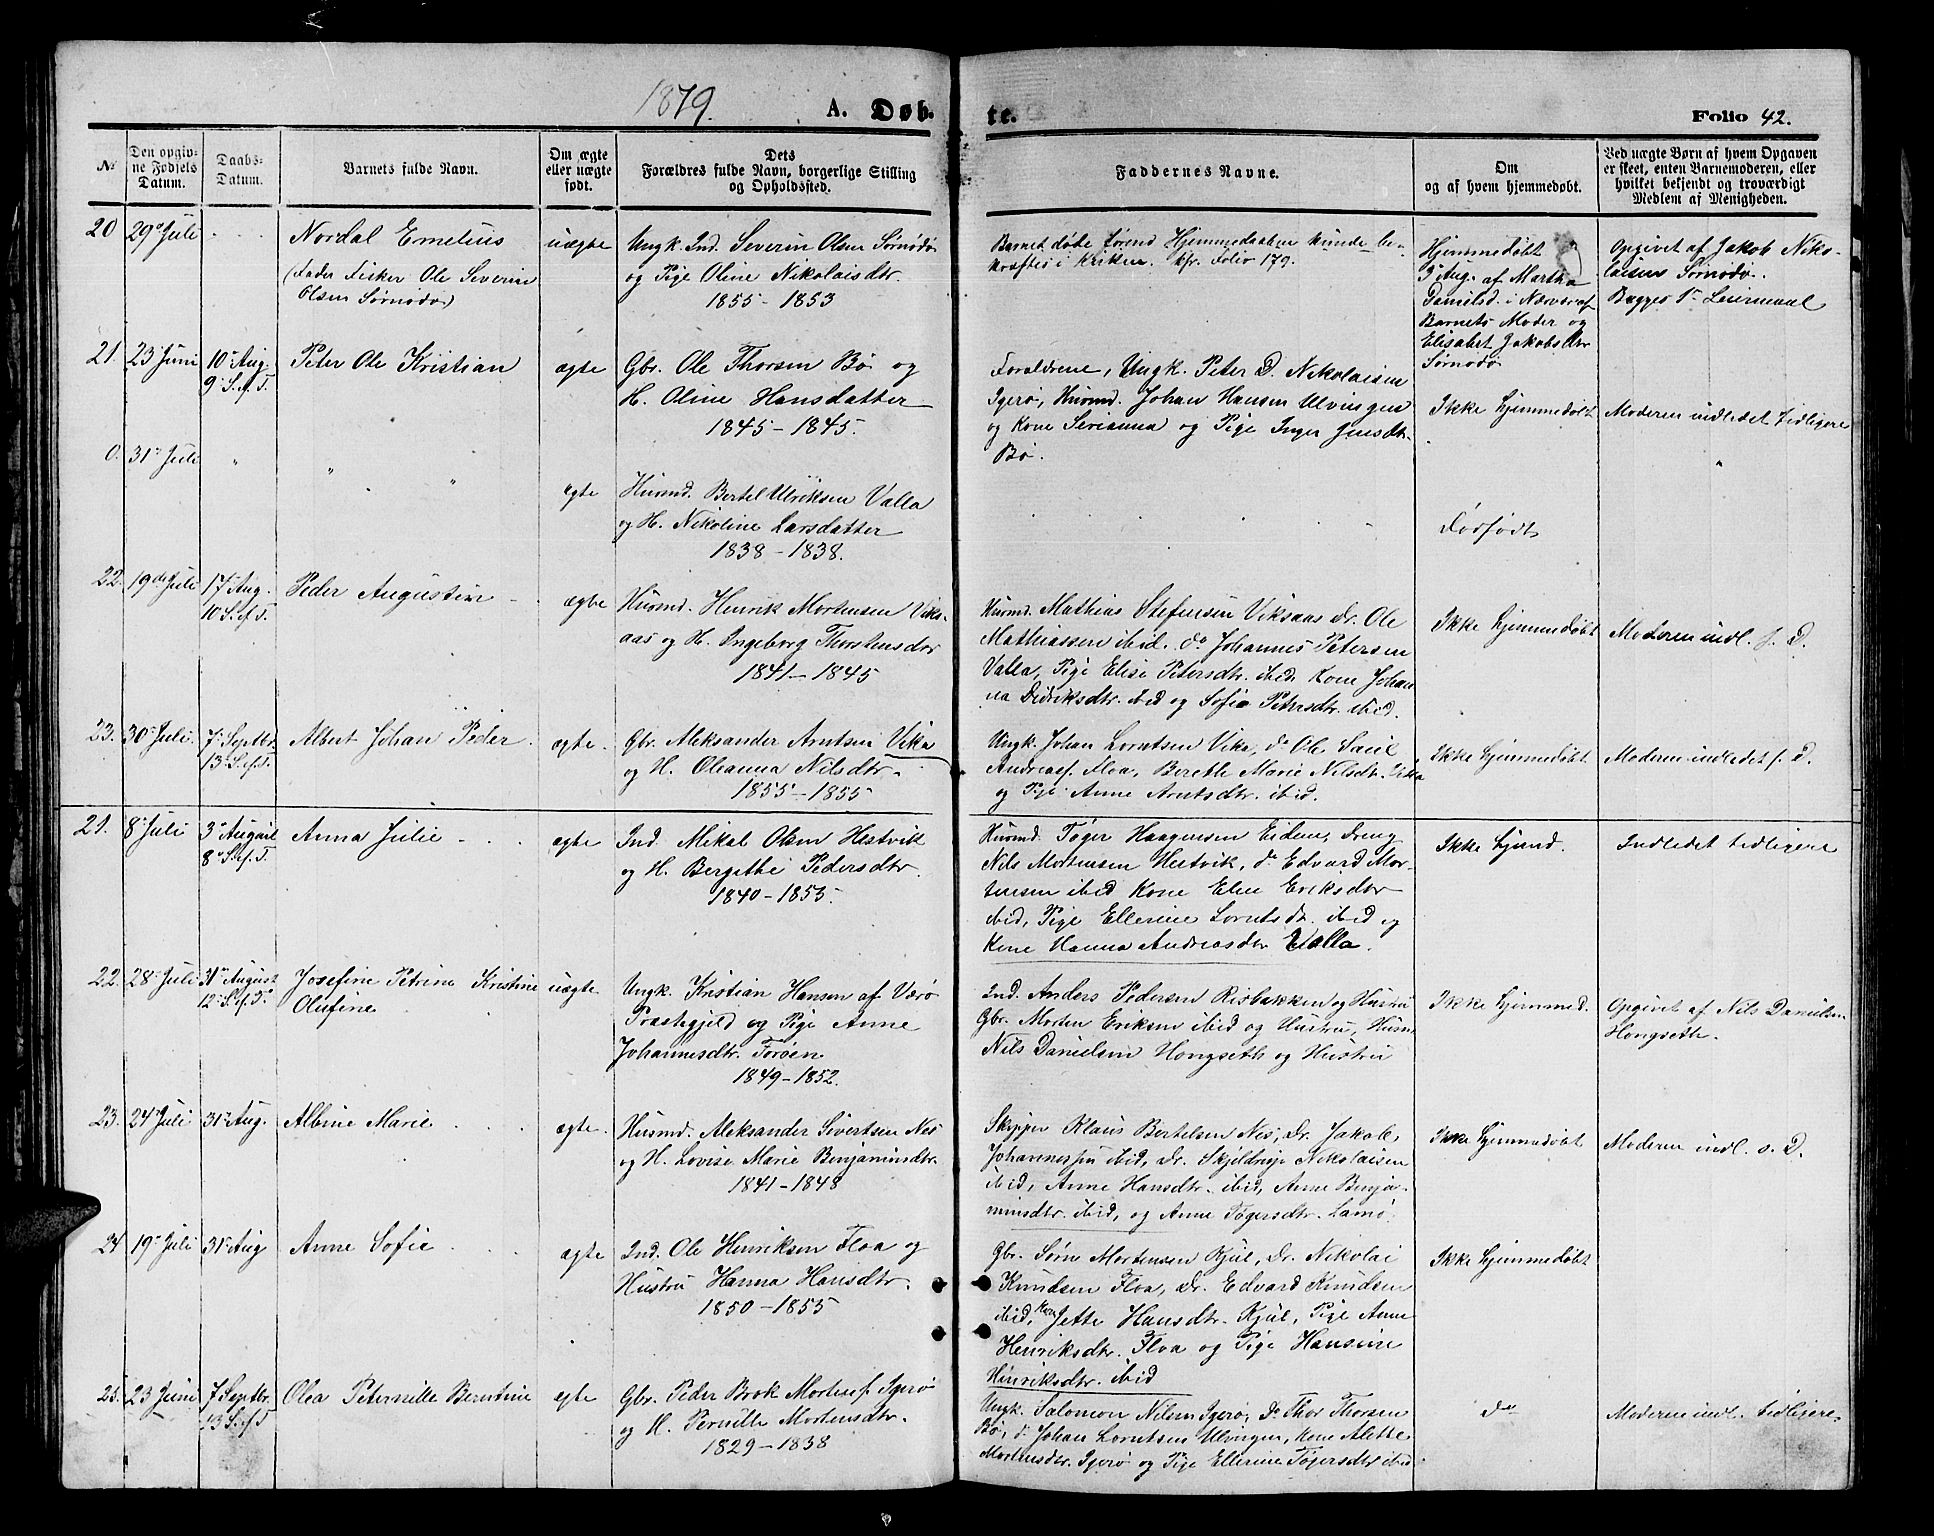 1879.
A. Døb-
te.
Folio 42.
№
Den opgiv-
ne Fødsels
Datum.
Daabs-
Datum.
Barnets fulde Navn.
Om ægte
eller uægte
født.
Dets
Forældres fulde Navn, borgerlige Stilling
og Opholdssted.
Faddernes Navne.
Om
og af hvem hjemmedøbt.
Ved uægte Børn af hvem Opgaven
er skeet, enten Barnemoderen, eller
hvilket bekjendt og troværdigt
Medlem af Menigheden.
20
29 Juli
Nordal Ernelius
(Fader Fisker Ole Severin
Olsen Sørnødø)
uægte
Ungk. Ind. Severin Olsen Sørnødø
og Pige Oline Nikolaisdtr.
1855 - 1853
Barnet døde førend Hjemmedaaben kunde be-
kræftes i Kirken. kfr. Folio 179.
Hjemmedøbt
3 Aug. af Martha
Danielsd. i Nærvær af
Barnets Moder og
Elisabet Jakobsdtr
Sørnødø
Opgivet af Jakob Niko-
laisen Sørnødø.
Begges 1ste Leiermaal
21.
23 Juni
10 Aug.
9 S. e. T.
Peter Ole Kristian
ægte
Gbr. Ole Thorsen Bø og
H. Oline Hansdatter
1845 - 1845.
Forældrene, Ungk. Peter D. Nikolaisen
Igerø, Husmd. Johan Hansen Ulvingen
og Kone Serianna og Pige Inger Jensdtr.
Bø.
Ikke hjemmedøbt
Moderen indledet tidligere
0.
31 Juli
"
"
"
ægte
Husmd. Bertel Ulriksen Valla
og H. Nikoline Larsdatter
1838 - 1838.
Dødfødt
"
22.
19de Juli
17 Aug.
10 S. e. T.
Peder Augustin
ægte
Husmd. Henrik Mortensen Viks-
aas og H. Ingeborg Thorstensdtr
1841 - 1845
Husmd. Mathias Stefensen Viksaas Dr. Ole
Mathiassen ibid. do Johannes Petersen
Valla, Pige Elise Petersdtr. ibid. Kone Johan
na Didriksdtr. ibid og Sofie Petersdtr. ibid.
Ikke hjemmedøbt
Moderen indl. s. D.
23.
30 Juli.
7 Septbr.
13 S. e. T.
Albert Johan Peder
ægte.
Gbr. Aleksander Arntsen Vika
og H. Oleanna Nilsdtr.
1855 - 1855
Ungk. Johan Lorntsen Vika, do Ole Saul
Andreas. Floa, Berethe Marie Nilsdtr. Vika
og Pige Anne Arntsdtr. ibid.
Ikke hjemmedøbt
Moderen indledet s. D.
21.
8 Juli
3 August
8 S. e. T.
Anna Julie
ægte
Ind. Mikal Olsen Hestvik
og H. Bergithe Pedersdtr.
1840 - 1855.
Husmd. Tøger Haagensen Eidem, Dreng
Nils Mortensen Hestvik, do Edvard Mor-
tensen ibid Kone Elen Eriksdtr
ibid, Pige Ellerine Lorntsdtr. ibid og
Kone Hanna Andreasdtr Valla.
Ikke hjmd.
Indledet tidligere
22.
28 Juli
31 August
12 S. e. T.
Josefine Petrine Kristine
Olufine
uægte.
Ungk. Kristian Hansen af Værø
Præstegjeld og Pige Anne
Johannesdtr. Forøen
1849 - 1852.
Ind. Anders Pedersen Risbakken og Hustru
Gbr. Morten Eriksen ibid og Hustru, Husm.
Nils Danielsen Hongseth og Hustru
Ikke hjemmed.
Opgivet af Nils Danielsen
Hongseth.
23.
24 Juli
31 Aug.
Albine Marie
ægte.
Husmd. Aleksander Sivertsen Nes
og H. Lovise Marie Benjamindtr.
1841 - 1848
Skipper Klaus Bertelsen Nes, Dr. Jakob
Johannessen ibid, Dr. Skjeldrup Nikolaisen
ibid, Anne Hansdtr. ibid, Anne Benja-
minsdtr. ibid, og Anne Tøgersdtr. Lamø.
Ikke hjemmedøbt
Moderen indl. s. D.
24
19 Juli
31 Aug
Anne Sofie
ægte
Ind. Ole Henriksen Floa og
Hustru Hanna Hansdtr.
1850 - 1855
Gbr. Sørn Mortensen Kjul, Dr. Nikolai
Knudsen Floa, Dr. Edvard Knudsen
ibid, Kone Jette Hansdtr. Kjul, Pige Anne
Henriksdtr. Floa og Pige Hansine
Henriksdtr. ibid
Ikke hjemmedøbt
25.
23 Juni
7 Septbr.
13 S. e. T
Olea Peternille Berntine
ægte
Gbr. Peder Brok Mortens. Igerø
og H. Pernille Mortensdtr.
1829 - 1838
Ungk. Salomon Nilsen Igerø, Do Thor Thorsen
Bø, d. Johan Lorntsen Ulvingen, Kone Alette
Mortensdtr. Igerø og Pige Ellerine Tøgersdtr ibid
do
Moderen indl. tidligere.